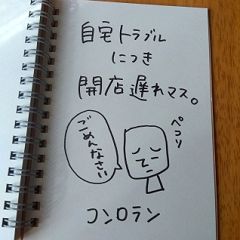 自宅トラブル
につき
開店遅れマス。
ごめんなさい
ペコリ
コンロラン